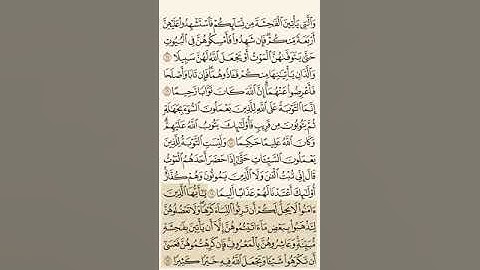 وَٱلَّٰتِى يَأْتِينَ ٱلْفَٰحِشَةَ مِن نِّسَآئِكُمْ فَٱسْتَشْهِدُوا۟ عَلَيْهِنَّ
أَرْبَعَةً مِّنكُمْ فَإِن شَهِدُوا۟ فَأَمْسِكُوهُنَّ فِى ٱلْبُيُوتِ
حَتَّىٰ يَتَوَفَّىٰهُنَّ ٱلْمَوْتُ أَوْ يَجْعَلَ ٱللَّهُ لَهُنَّ سَبِيلًا ١٥
وَٱلَّذَانِ يَأْتِيَٰنِهَا مِنكُمْ فَـَٔاذُوهُمَا فَإِن تَابَا وَأَصْلَحَا
فَأَعْرِضُوا۟ عَنْهُمَآ إِنَّ ٱللَّهَ كَانَ تَوَّابًا رَّحِيمًا ١٦
إِنَّمَا ٱلتَّوْبَةُ عَلَى ٱللَّهِ لِلَّذِينَ يَعْمَلُونَ ٱلسُّوٓءَ بِجَهَٰلَةٍ
ثُمَّ يَتُوبُونَ مِن قَرِيبٍ فَأُو۟لَٰٓئِكَ يَتُوبُ ٱللَّهُ عَلَيْهِمْ
وَكَانَ ٱللَّهُ عَلِيمًا حَكِيمًا ١٧ وَلَيْسَتِ ٱلتَّوْبَةُ لِلَّذِينَ
يَعْمَلُونَ ٱلسَّيِّـَٔاتِ حَتَّىٰٓ إِذَا حَضَرَ أَحَدَهُمُ ٱلْمَوْتُ
قَالَ إِنِّى تُبْتُ ٱلْـَٰٔنَ وَلَا ٱلَّذِينَ يَمُوتُونَ وَهُمْ كُفَّارٌ
أُو۟لَٰٓئِكَ أَعْتَدْنَا لَهُمْ عَذَابًا أَلِيمًا ١٨ يَٰٓأَيُّهَا ٱلَّذِينَ
ءَامَنُوا۟ لَا يَحِلُّ لَكُمْ أَن تَرِثُوا۟ ٱلنِّسَآءَ كَرْهًا وَلَا تَعْضُلُوهُنَّ
لِتَذْهَبُوا۟ بِبَعْضِ مَآ ءَاتَيْتُمُوهُنَّ إِلَّآ أَن يَأْتِينَ بِفَٰحِشَةٍ
مُّبَيِّنَةٍ وَعَاشِرُوهُنَّ بِٱلْمَعْرُوفِ فَإِن كَرِهْتُمُوهُنَّ فَعَسَىٰٓ
أَن تَكْرَهُوا۟ شَيْـًٔا وَيَجْعَلَ ٱللَّهُ فِيهِ خَيْرًا كَثِيرًا ١٩